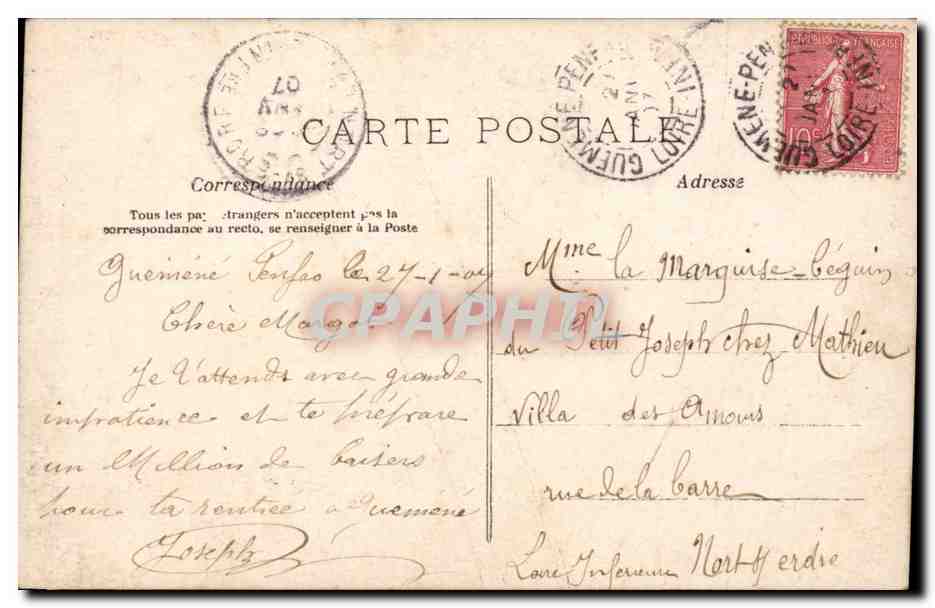 CARTE POSTALE
Correspondance
Tous les pays étrangers n'acceptent pas la
correspondance au recto, se renseigner à la Poste
Gueméné Penfao le 27-1-07
Chère Margot
Je t'attends avec grande
impatience et te prépare
un Million de baisers
pour ta rentrée a Gueméné
Joseph
Adresse
Mme la Marquise-béguin
du Petit Joseph chez Mathieu
Villa des Amours
rue de la barre
Loire Inférieure Nort s/ erdre
REPUBLIQUE FRANÇAISE
10c
GUEMENE-PENFAO
27
JANV
07
LOIRE INFRE
GUEMENE-PEN
27
JAN
LOIRE IN
07
CPAPHIL